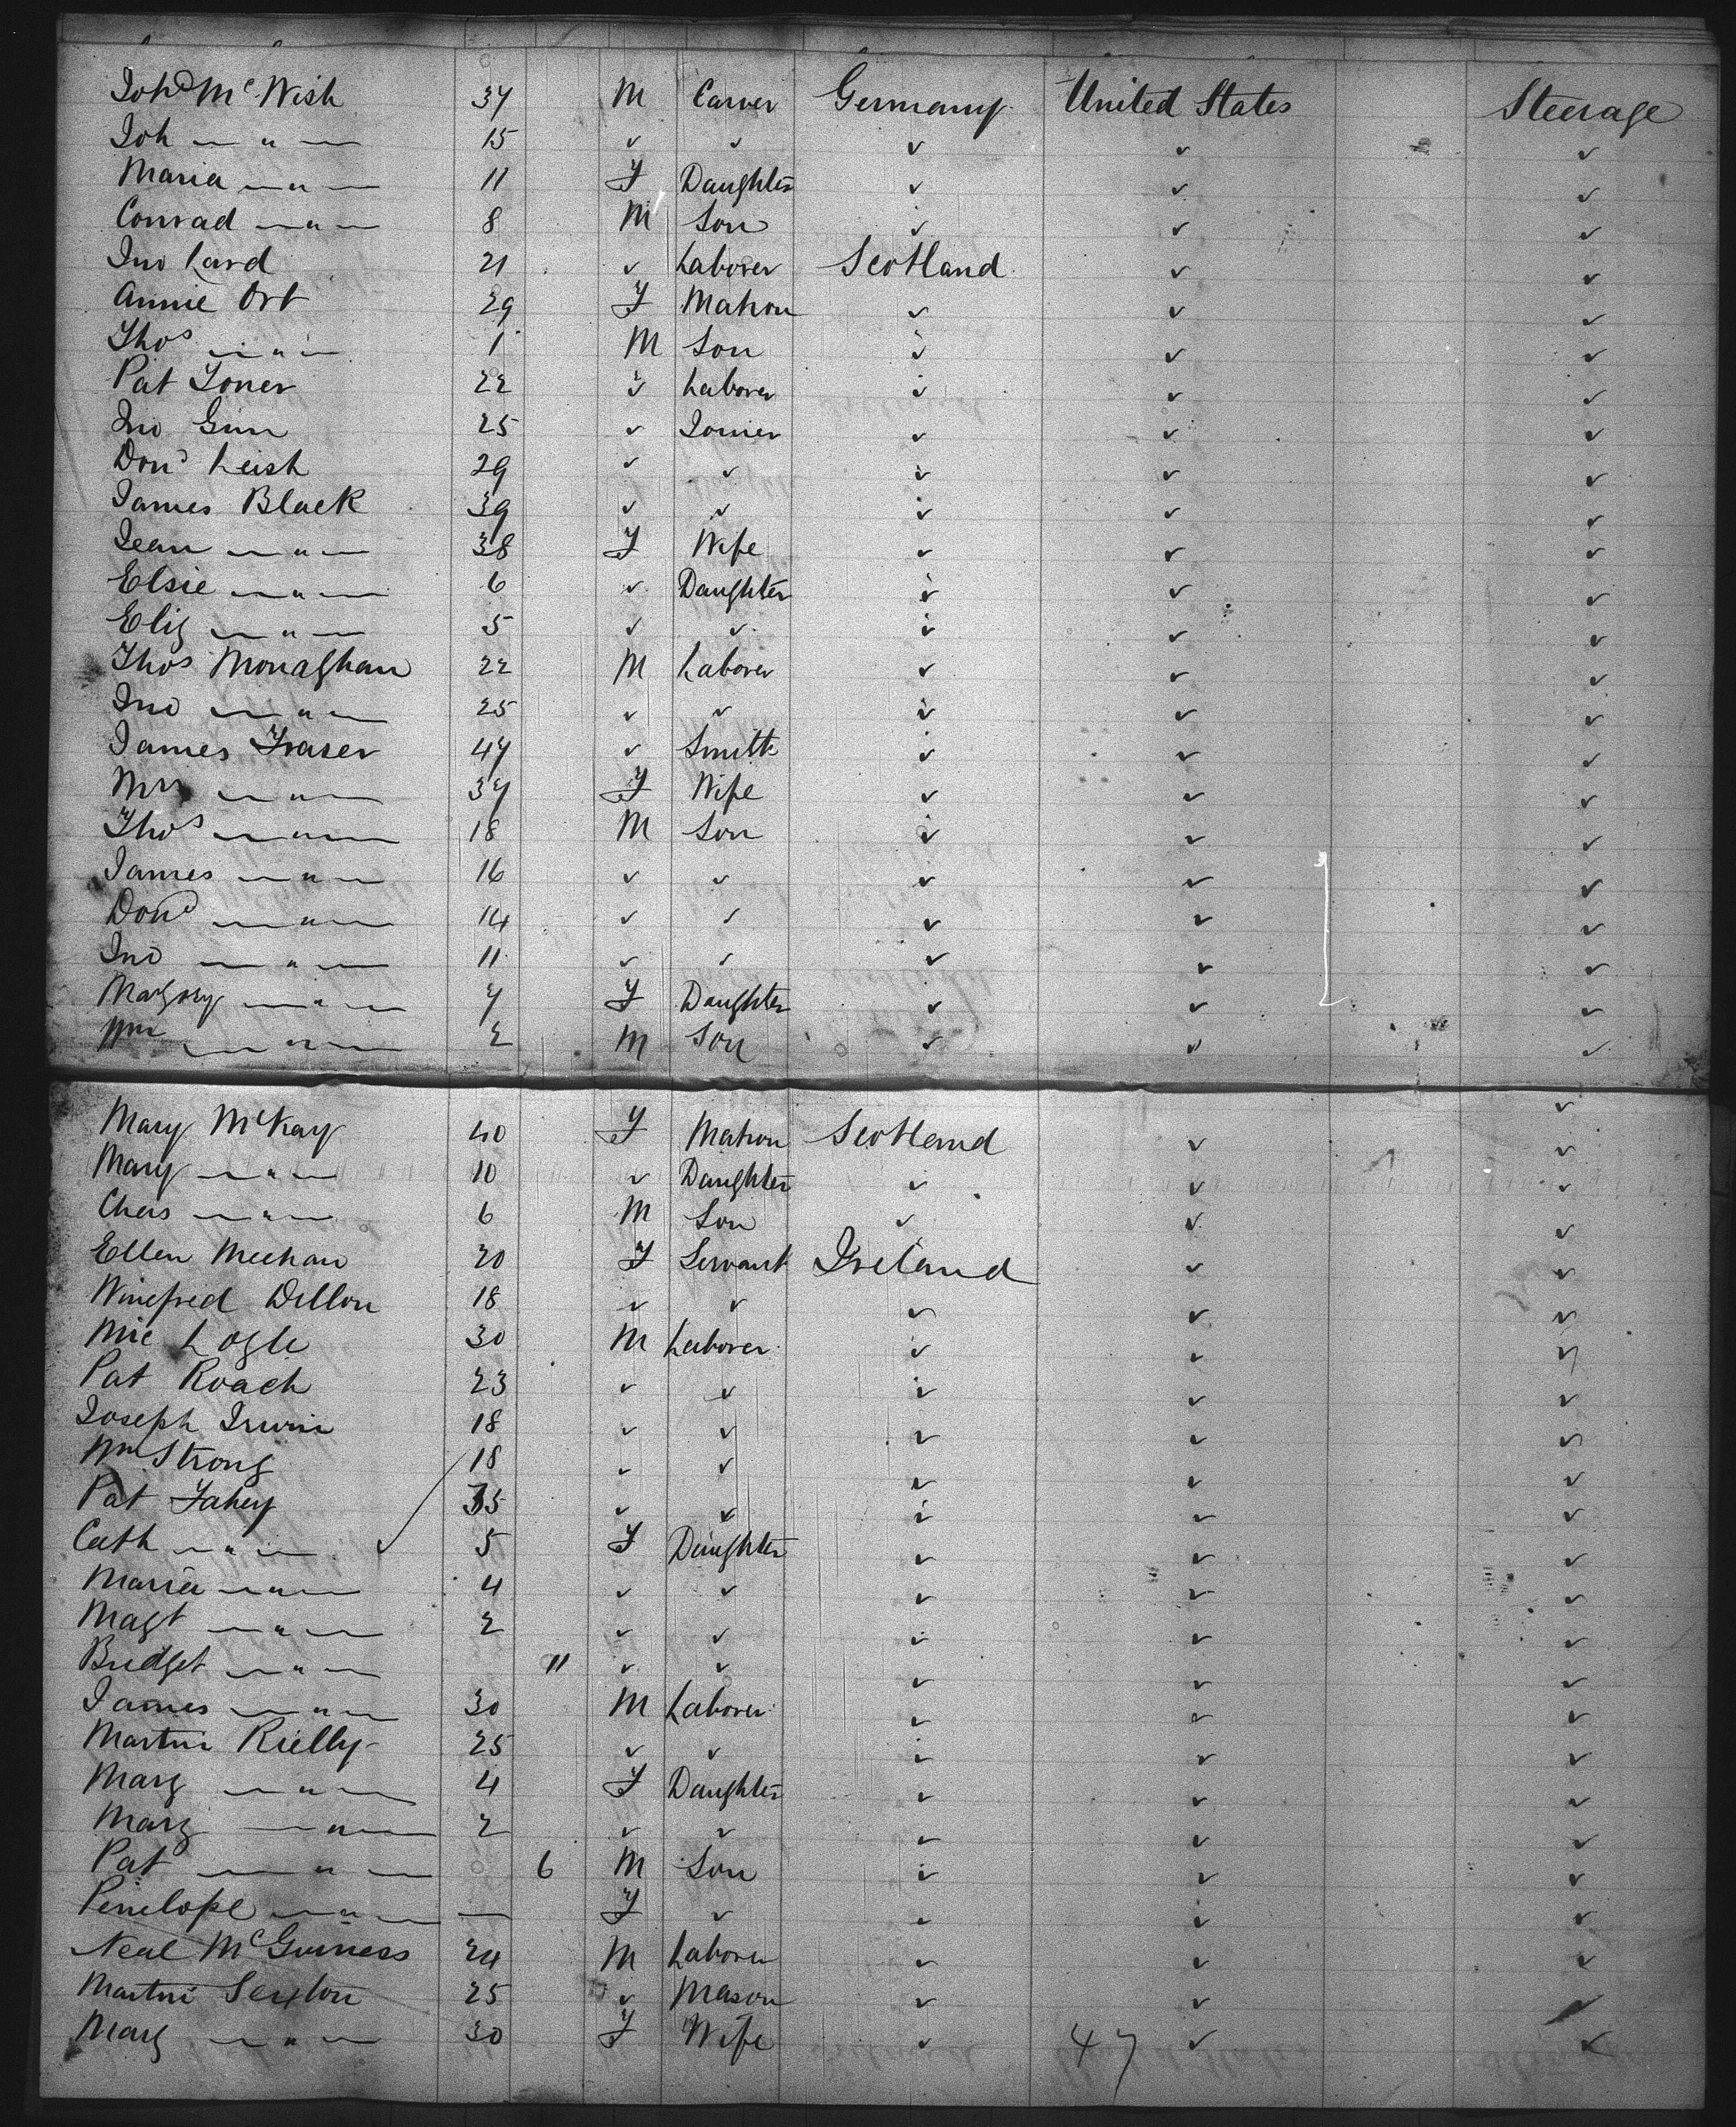 Joh^d Mc Nish 37 M Carver Germany United States Steerage
Joh — " — 15 ✓ ✓ ✓ ✓ ✓
Maria — " — 11 F Daughter ✓ ✓ ✓
Conrad — " — 8 M Son ✓ ✓ ✓
Jno Lard 21 ✓ Laborer Scotland ✓ ✓
Annie Ort 29 F Matron ✓ ✓ ✓
Thos — " — 1 M Son ✓ ✓ ✓
Pat Toner 22 ✓ Laborer ✓ ✓ ✓
Jno Gunn 25 ✓ Joiner ✓ ✓ ✓
Dond Leish 29 ✓ ✓ ✓ ✓ ✓
James Black 39 ✓ ✓ ✓ ✓ ✓
Jean — " — 38 F Wife ✓ ✓ ✓
Elsie — " — 6 ✓ Daughter ✓ ✓ ✓
Eliz — " — 5 ✓ ✓ ✓ ✓ ✓
Thos Monaghan 22 M Laborer ✓ ✓ ✓
Jno — " — 25 ✓ ✓ ✓ ✓ ✓
James Fraser 47 ✓ Smith ✓ ✓ ✓
Mrs — " — 37 F Wife ✓ ✓ ✓
Thos — " — 18 M Son ✓ ✓ ✓
James — " — 16 ✓ ✓ ✓ ✓ ✓
Dond — " — 14 ✓ ✓ ✓ ✓ ✓
Jno — " — 11 ✓ ✓ ✓ ✓ ✓
Margory — " — 7 F Daughter ✓ ✓ ✓
Wm — " — 2 M Son ✓ ✓ ✓
Mary McKay 40 F Matron Scotland ✓ ✓
Mary — " — 10 ✓ Daughter ✓ ✓ ✓
Chas — " — 6 M Son ✓ ✓ ✓
Ellen Meehan 20 F Servant Ireland ✓ ✓
Winefred Dillon 18 ✓ ✓ ✓ ✓ ✓
Mic Logle 30 M Laborer ✓ ✓ ✓
Pat Roach 23 ✓ ✓ ✓ ✓ ✓
Joseph Irwin 18 ✓ ✓ ✓ ✓ ✓
Wm Strong 18 ✓ ✓ ✓ ✓ ✓
Pat Fahey 35 ✓ ✓ ✓ ✓ ✓
Cath — " — ✓ 5 F Daughter ✓ ✓ ✓
Maria — " — 4 ✓ ✓ ✓ ✓ ✓
Magt — " — 2 ✓ ✓ ✓ ✓ ✓
Bridget — " — 11 ✓ ✓ ✓ ✓ ✓
James — " — 30 M Laborer ✓ ✓ ✓
Martin Rielly 25 ✓ ✓ ✓ ✓ ✓
Marg — " — 4 F Daughter ✓ ✓ ✓
Marg — " — 2 ✓ ✓ ✓ ✓ ✓
Pat — " — 6 M Son ✓ ✓ ✓
Penelope — " — — F ✓ ✓ ✓ ✓
Neal McGuiness 24 M Laborer ✓ ✓ ✓
Martin Sexton 25 ✓ Mason ✓ ✓ ✓
Marg — " — 30 F Wife ✓ 47 ✓ ✓